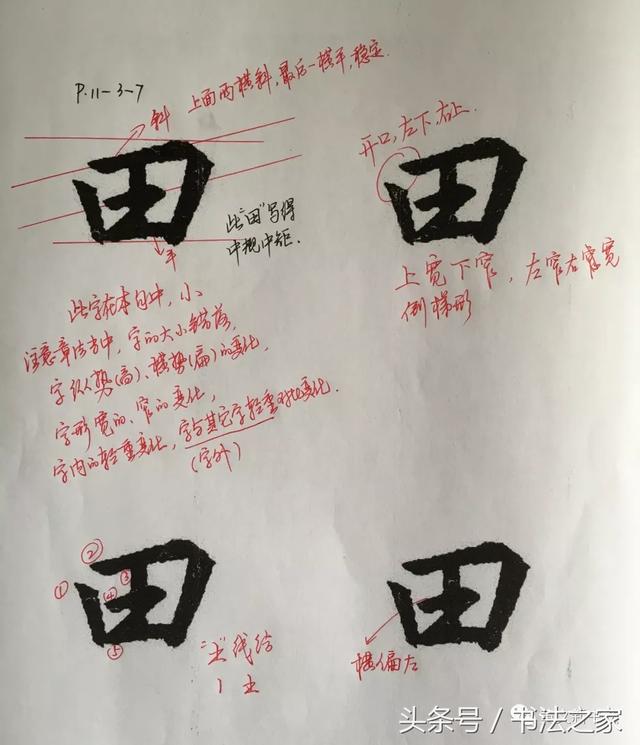 P.11-3-7
斜 上面两横斜,最后一横平,稳定.
田
平
此"田"写得
中规中矩.
开口,左下,右上.
田
上宽下窄,左窄右宽
倒梯形
此字在本句中,小
注意章法当中,字的大小错落,
字纵势(高)、横势(扁)的变化,
字形宽的、窄的变化,
字内的轻重变化,字与其它字轻重对比变化.
(字外)
田
① ② ③ ④ ⑤
"土"线结
丨 土
田
横偏左
头条号 / 书法之家